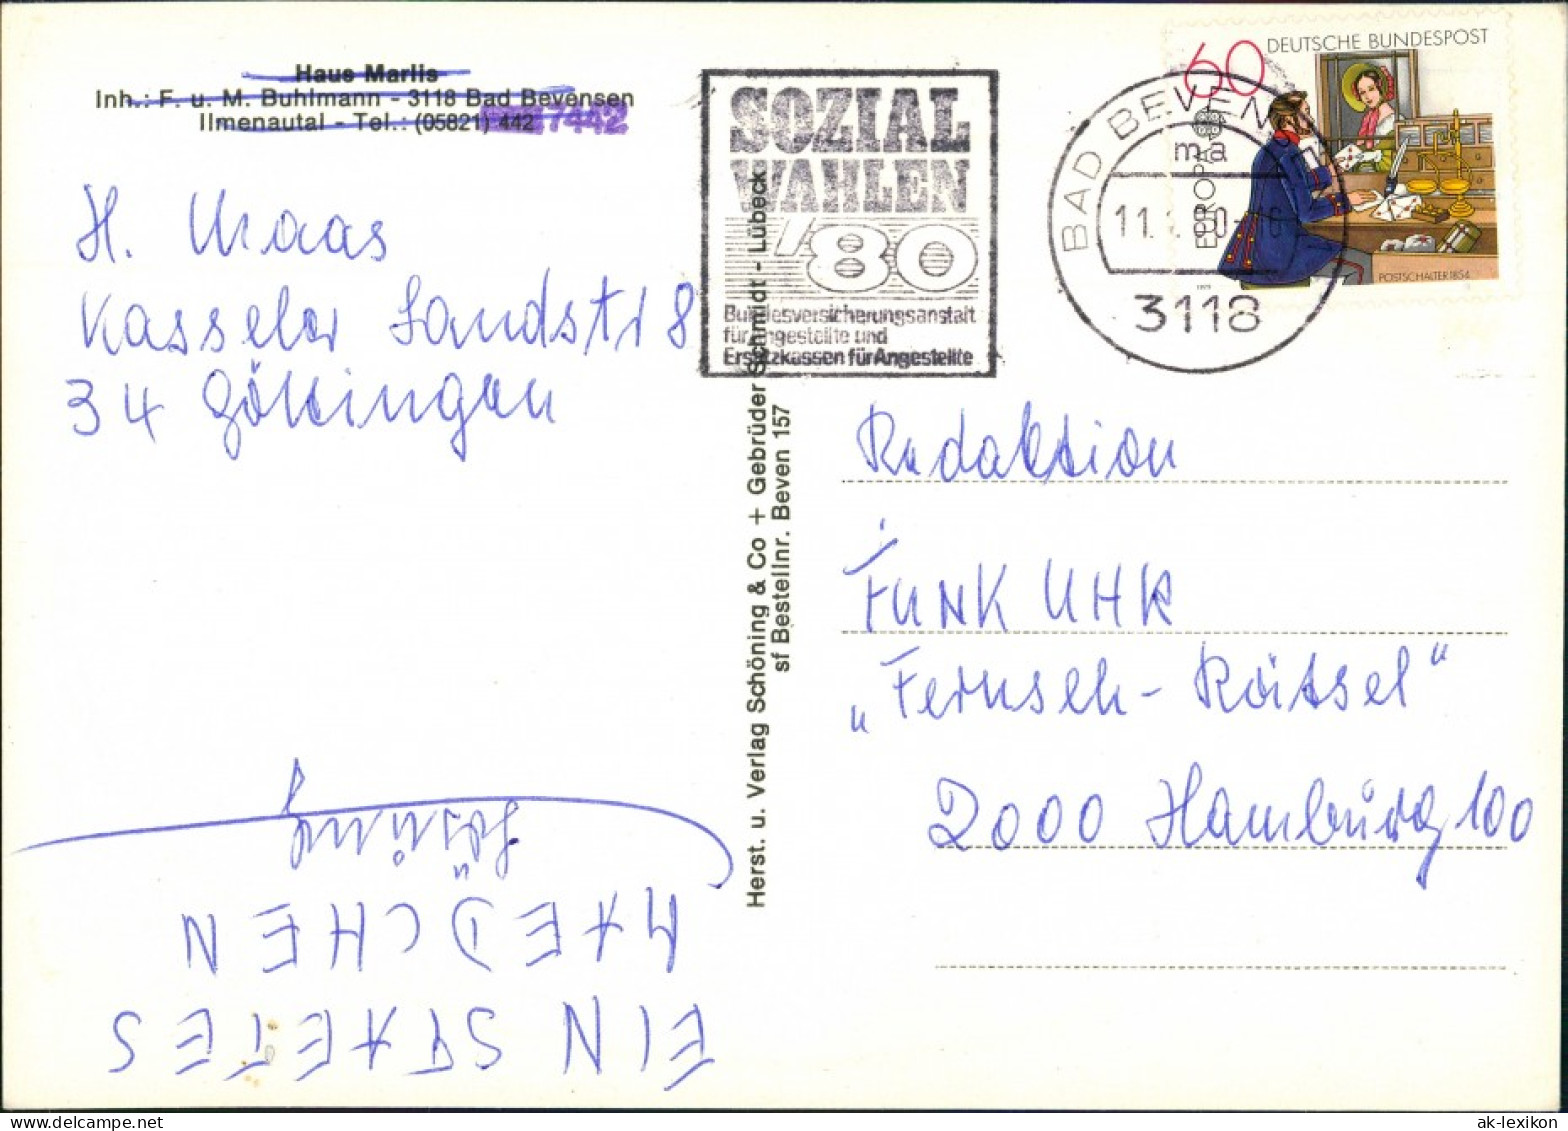 Haus Marlis
Inh.: F. u. M. Buhlmann - 3118 Bad Bevensen
Ilmenautal - Tel.: (05821) 442 7442
H. Maas
Kasseler Landstr 8
34 Göttingen
Lösung
EIN STAETES
MAEDCHEN
Herst. u. Verlag Schöning & Co + Gebrüder Schmidt - Lübeck
sf Bestellnr. Beven 157
SOZIAL
WAHLEN
'80
Bundesversicherungsanstalt
für Angestellte und
Ersatzkassen für Angestellte
BAD BEVEN
ma
11.
3118
60 DEUTSCHE BUNDESPOST
EUROPA
POSTSCHALTER 1854
1979
Redaktion
FUNK UHR
„Fernseh-Rätsel“
2000 Hamburg 100
ak-lexikon